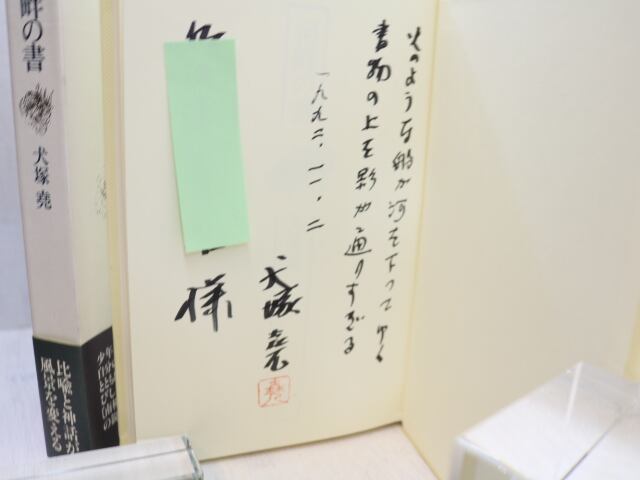 火のような船が河を下ってゆく
書物の上を影が通りすぎる
一九九二、一一、二
犬塚堯
様
堯
畔の書
犬塚堯
比喩と神話が
風景を変える